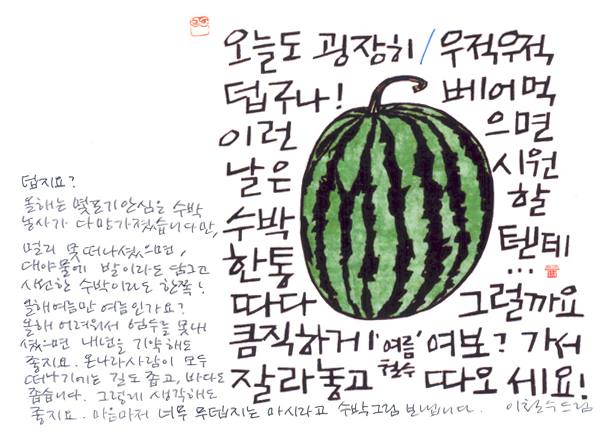 오늘도 굉장히
덥구나!
이런
날은
수박
한통
따다
큼직하게
잘라놓고
우적우적
베어먹
으면
시원
할
텐데
...
그럴까요
여보? 가서
따오세요!
'여름'
철수
덥지요?
올해는 몇포기안심은 수박
농사가 다망가졌습니다만,
멀리 못떠나셨으면,
대야물에 발이라도 담그고
시원한 수박이라도 한쪽!
올해여름만 여름인가요?
올해 어려워서 엄두를 못내
셨으면 내년을 기약해도
좋지요. 온나라사람이 모두
떠나기에는 길도 좁고, 바다도
좁습니다. 그렇게 생각해도
좋지요. 마음마저 너무 무덥지는 마시라고 수박그림 보냅니다. 이철수드림